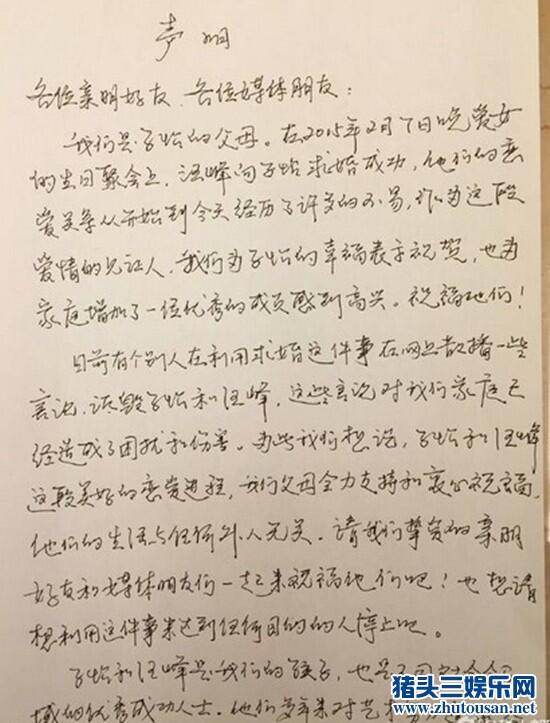 声明
各位亲朋好友、各位媒体朋友：
我们是子怡的父母。在2015年2月7日晚爱女
的生日聚会上，汪峰向子怡求婚成功，他们的恋
爱关系从开始到今天经历了许多的不易，作为这段
爱情的见证人，我们为子怡的幸福表示祝贺，也为
家庭增加了一位优秀的成员感到高兴。祝福他们！
目前有个别人在利用求婚这件事在网上散播一些
言论，诋毁子怡和汪峰，这些言论对我们家庭已
经造成了困扰和伤害。为此我们想说，子怡和汪峰
这段美好的恋爱进程，我们父母全力支持和衷心祝福，
他们的生活与任何外人无关。请我们挚爱的亲朋
好友和媒体朋友们一起来祝福他们吧！也想请
想利用这件事来达到任何目的的人停止吧。
子怡和汪峰是我们的孩子，也是不同
域的优秀成功人士。他们多年来对艺
猪头三娱乐网
www.zhutousan.net